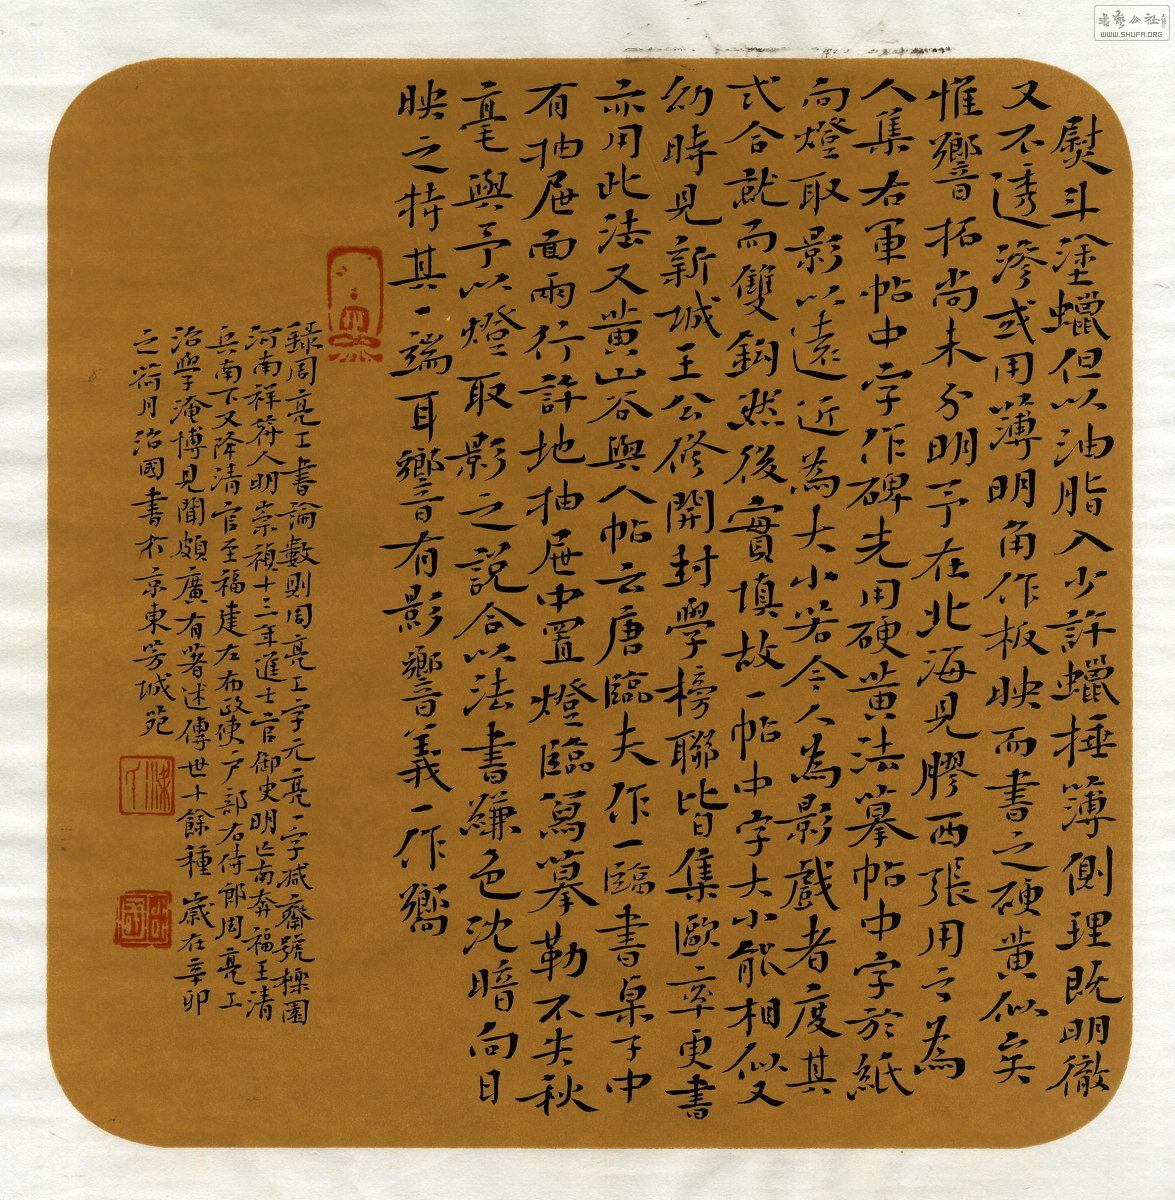 熨斗塗蠟但以油脂入少許蠟捶簿側理既明徹
又不透滲或用薄明角作板映而書之硬黃似矣
惟響拓尚未分明予在北海見膠西張用之為
人集右軍帖中字作碑先用硬黃法摹帖中字於紙
向燈取影以遠近為大小若今人為影戲者度其
式合就而雙鉤然後實填故一帖中字大小能相似又
幼時見新城王公修開封學榜聯皆集歐率更書
亦用此法又黃山谷與人帖云唐臨夫作一臨書桌子中
有抽屜面兩行許地抽屜中置燈臨寫摹勒不失秋
毫與予以燈取影之說合以法書縑色沈暗向日
映之特其一端耳響有影響義一作嚮
錄周亮工書論數則周亮工字元亮一字減齋號櫟園
河南祥符人明崇禎十三年進士官御史明亡南奔福王清
兵南下又降清官至福建左布政使户部右侍郎周亮工
治學淹博見聞頗廣有著述傳世十餘種 歲在辛卯
之荷月治國書於京東芳城苑
書藝公社
WWW.SHUFA.ORG